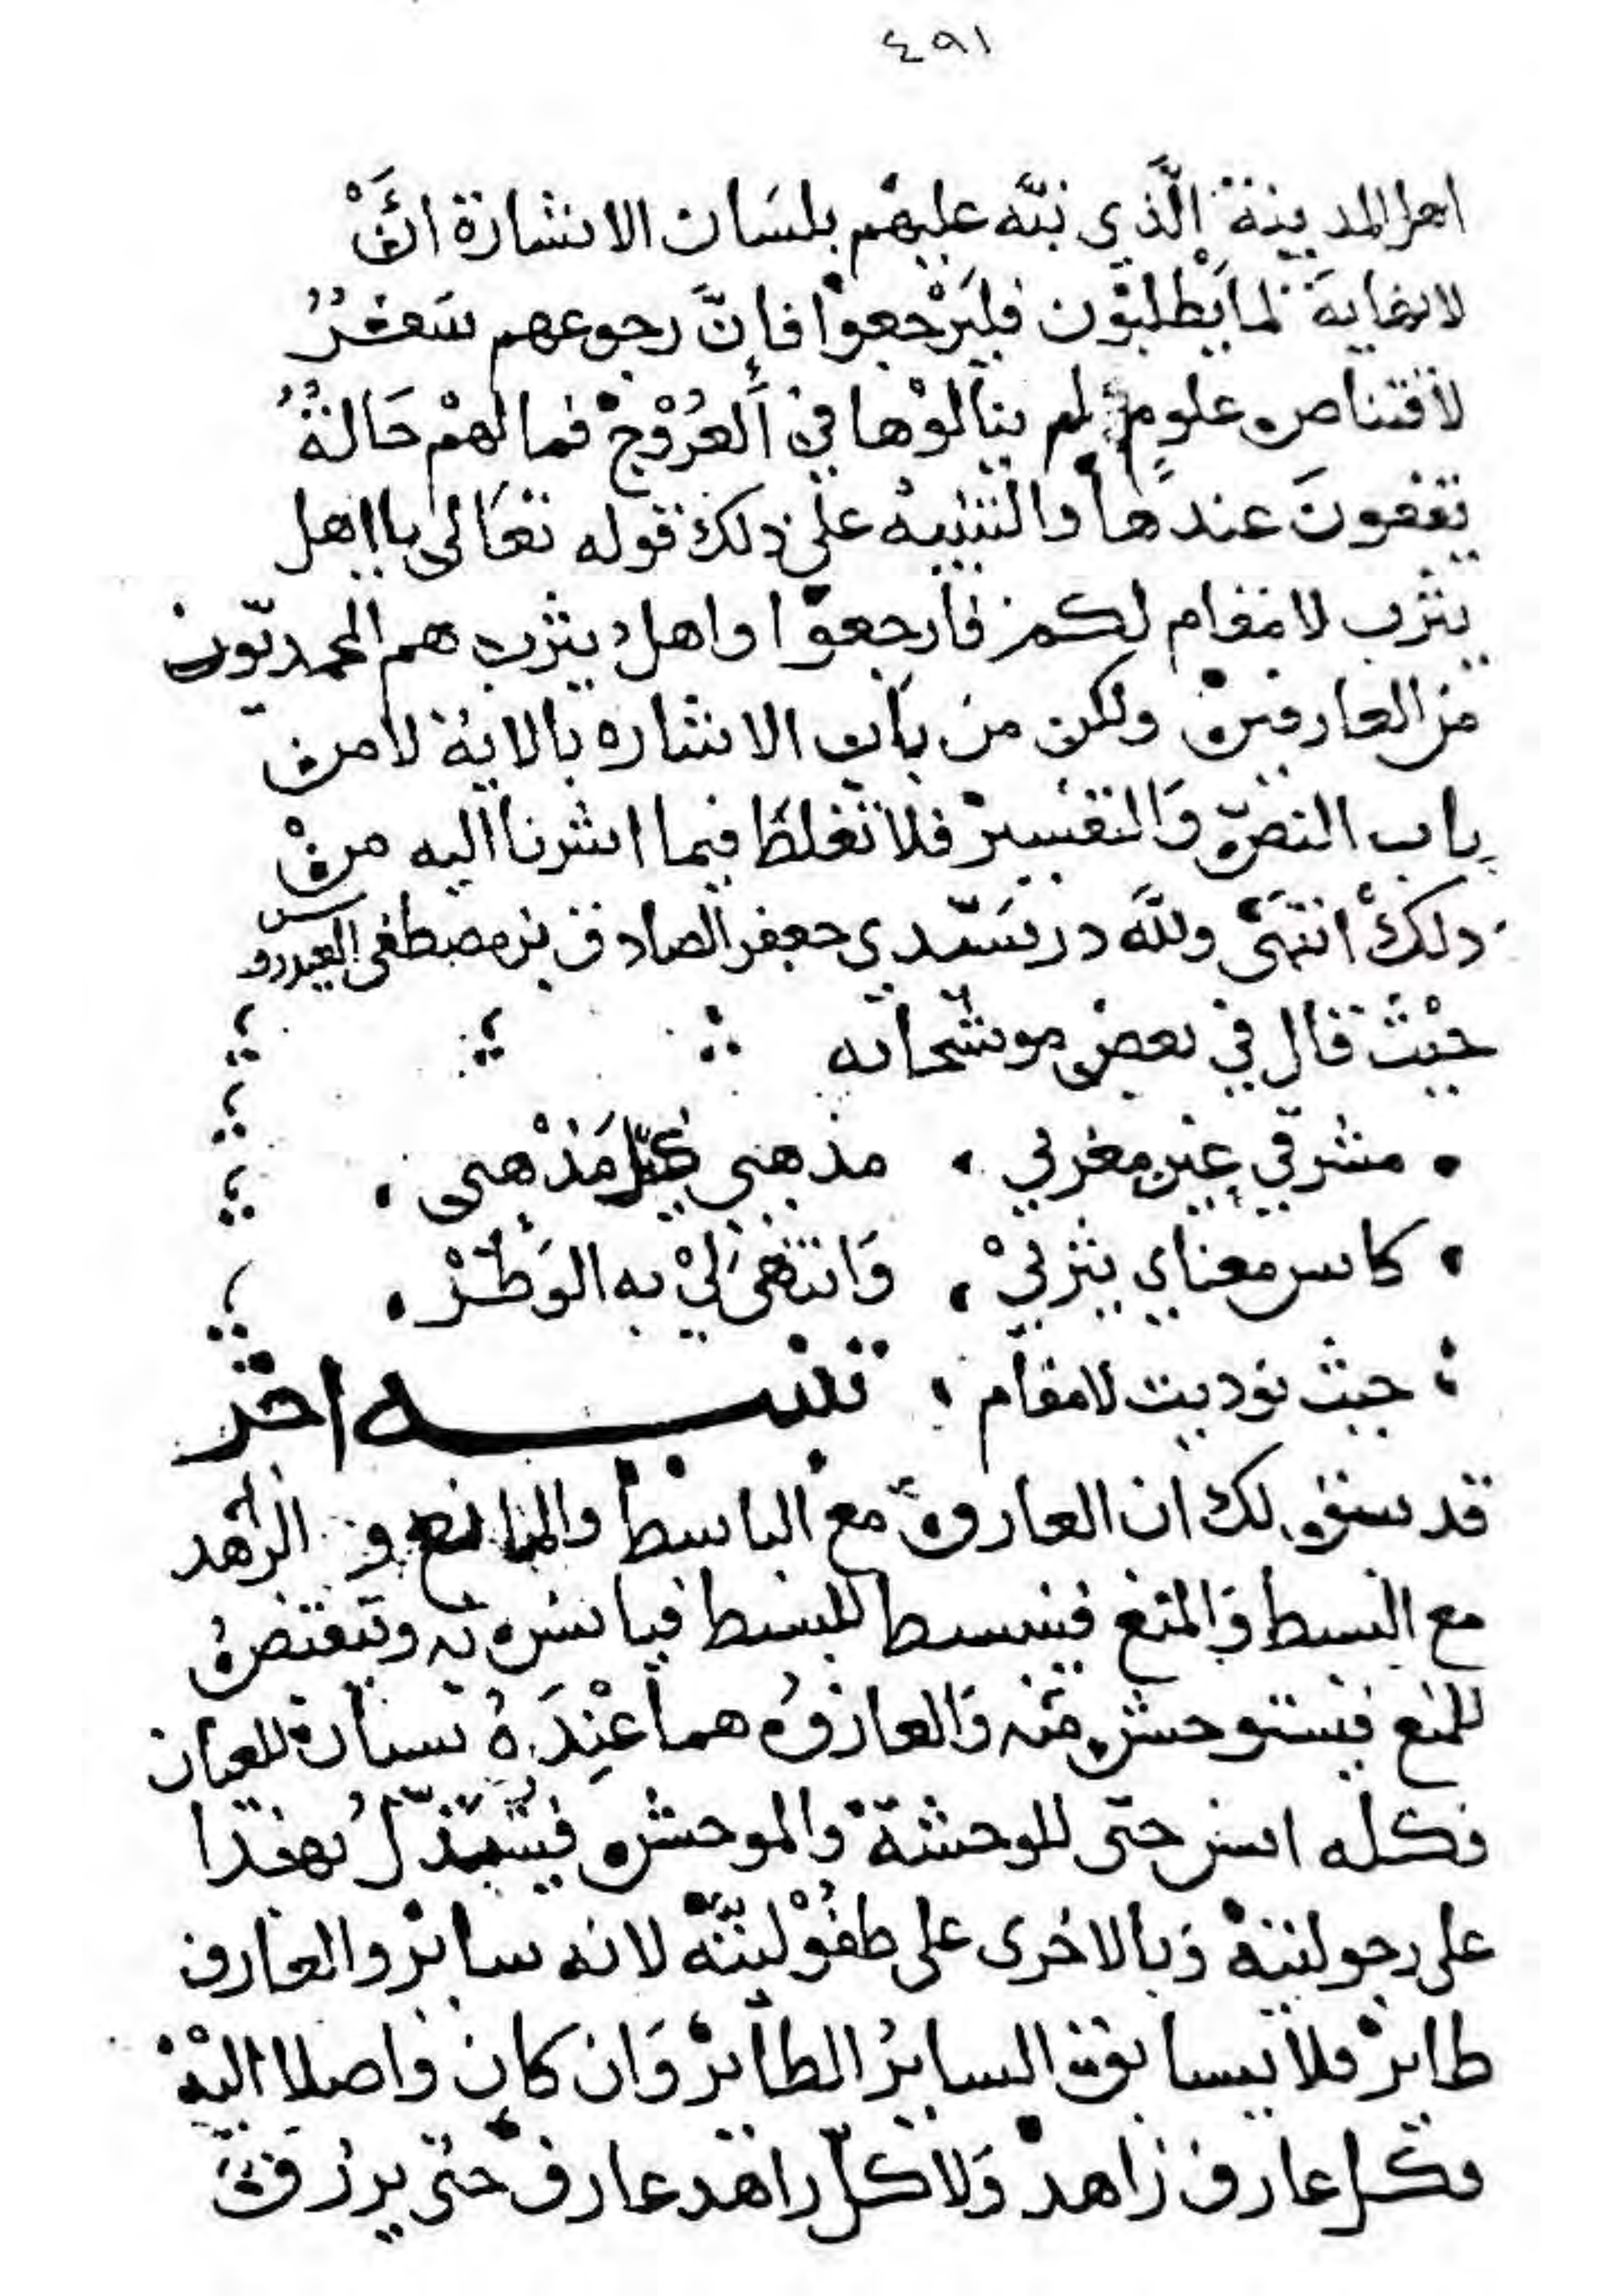 ٤٩١
اهل المدينة الَّذي نبّه عليهم بلسَان الاشارة انَّ
لا نهاية لما يطلبُون فليَرْجعوا فانَّ رجوعهم سَفرٌ
لاقتناص علومٍ لم ينالوْها في العُرُوْج فما لهمْ حَالةٌ
يقفونَ عندها والتنبيهُ على ذلك قوله تعَالى يا اهل
يثرب لا مقام لكم فارجعوا واهل يثرب هم المحمديّون
من العارفين ولكن من باب الاشاره بالاية لا من
باب النصّ وَالتفسير فلا تغلط فيما اشرنا اليه منْ
ذلكْ انتهَى وللهَ در سَيّدي جعفر الصادق بن مصطفى العيدروس
حيْث قال في بعض موشّحاته
مشرقي غير مغربي ، مذهبي كلّ مَذْهبى ،
كاس معناي يثربيْ ، وَانتهَى ليْ به الوَطَرْ ،
حيث نوديت لا مقام ، تنبيه اخر
قد سبق لك ان العارف مع الباسط والمانع و الزاهد
مع البسط وَالمنع فينبسط للبسط فيانس به وَينقبضُ
للمنع فيستوحش منه وَالعارفُ هما عنْدَهُ سيان للعيان
فكله انس حتّى للوحشة والموحش فيستدلُ بهذا
على رجوليته وَبالاخرى على طفُوْليتّه لانه ساير والعارف
طاير فلا يسابق السايرُ الطاير وَان كان واصلا اليْه
فكل عارف زاهد وَلا كلّ زاهد عارف حتى يرزقَ